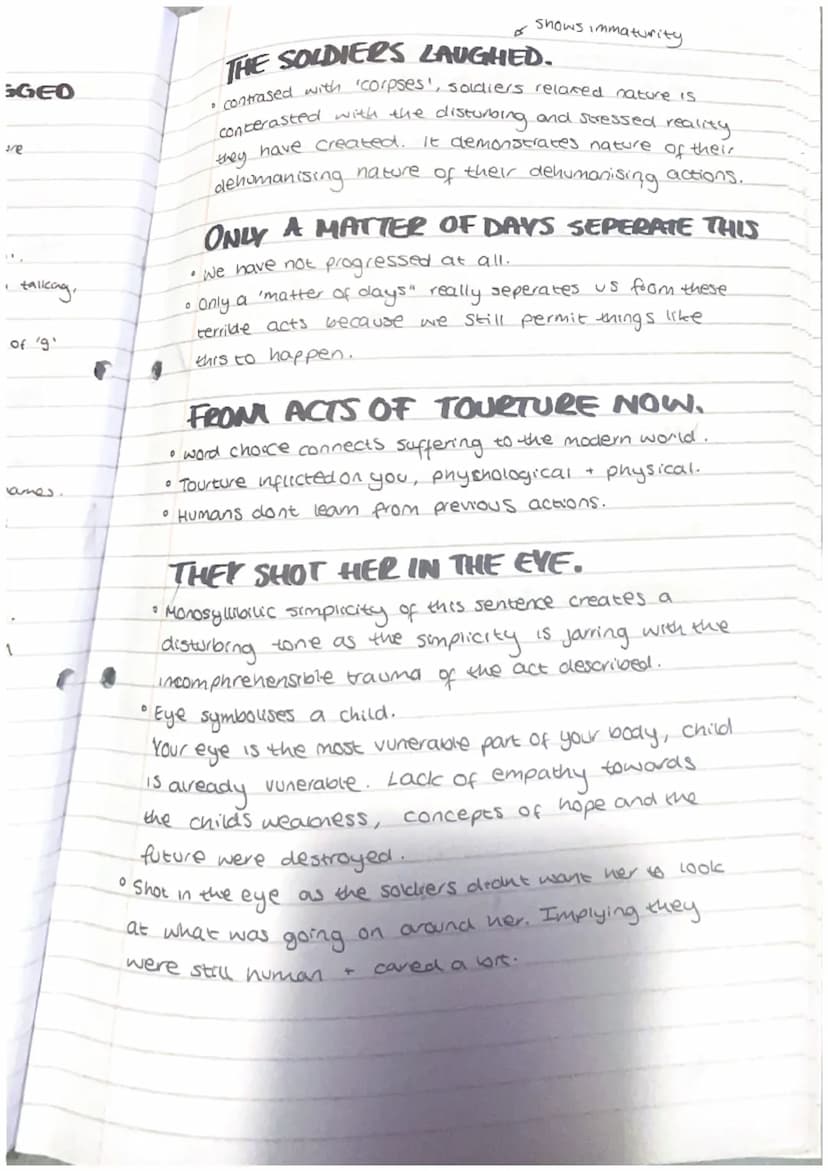 GGED
re
talking,
of 'g'
ames.
shows immaturity
THE SOLDIERS LAUGHED.
• contrased with 'corpses', soldiers relaxed nature is
conterasted with the disturbing and stressed reality
they have created. It demonstrates nature of their
dehumanising nature of their dehumanising actions.
ONLY A MATTER OF DAYS SEPERATE THIS
• We have not progressed at all.
• Only a 'matter of days" really seperates us from these
terrible acts because we still permit things like
this to happen.
FROM ACTS OF TOURTURE NOW.
• word choice connects suffering to the modern world.
• Tourture inflicted on you, phychological + physical.
• Humans dont learn from previous actions.
THEY SHOT HER IN THE EYE.
• Monosyllbilic simplicity of this sentence creates a
disturbing tone as the simplicity is jarring with the
incomphrehensible trauma of the act described.
• Eye symbolises a child.
Your eye is the most vunerable part of your body, child
is already vunerable. Lack of empathy towards
the childs weakness, concepts of hope and the
future were destroyed.
• Shot in the eye as the soldiers didnt want her to look
at what was going on around her. Implying they
were still human + cared a bit.